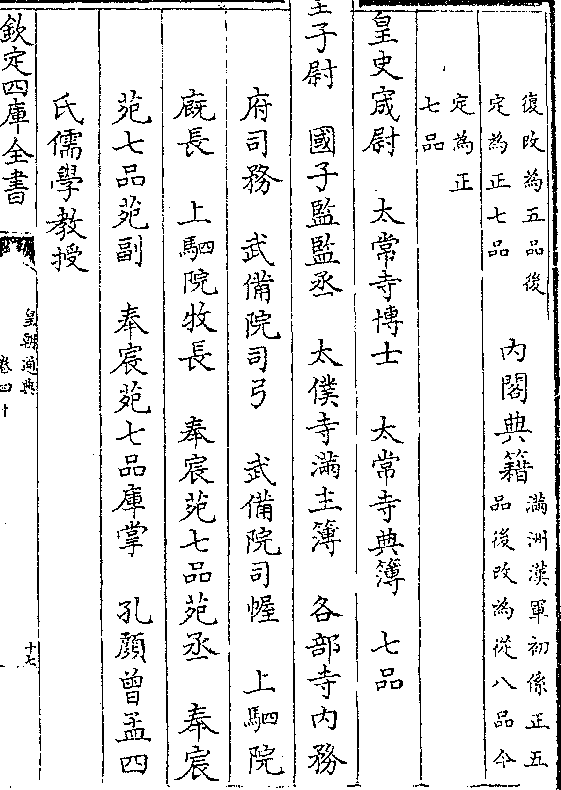 復改為五品後
定為正七品
內閣典籍
滿洲漢軍初係正五
品後改為從八品今
定為正
七品
皇史宬尉　太常寺博士　太常寺典簿　七品
子尉　國子監監丞　太僕寺滿主簿　各部寺內務
府司務　武備院司弓　武備院司幄　上駟院
廐長　上駟院牧長　奉宸苑七品苑丞　奉宸
苑七品苑副　奉宸苑七品庫掌　孔顏曾孟四
氏儒學教授
欽定四庫全書
皇朝通典
卷四十
十七